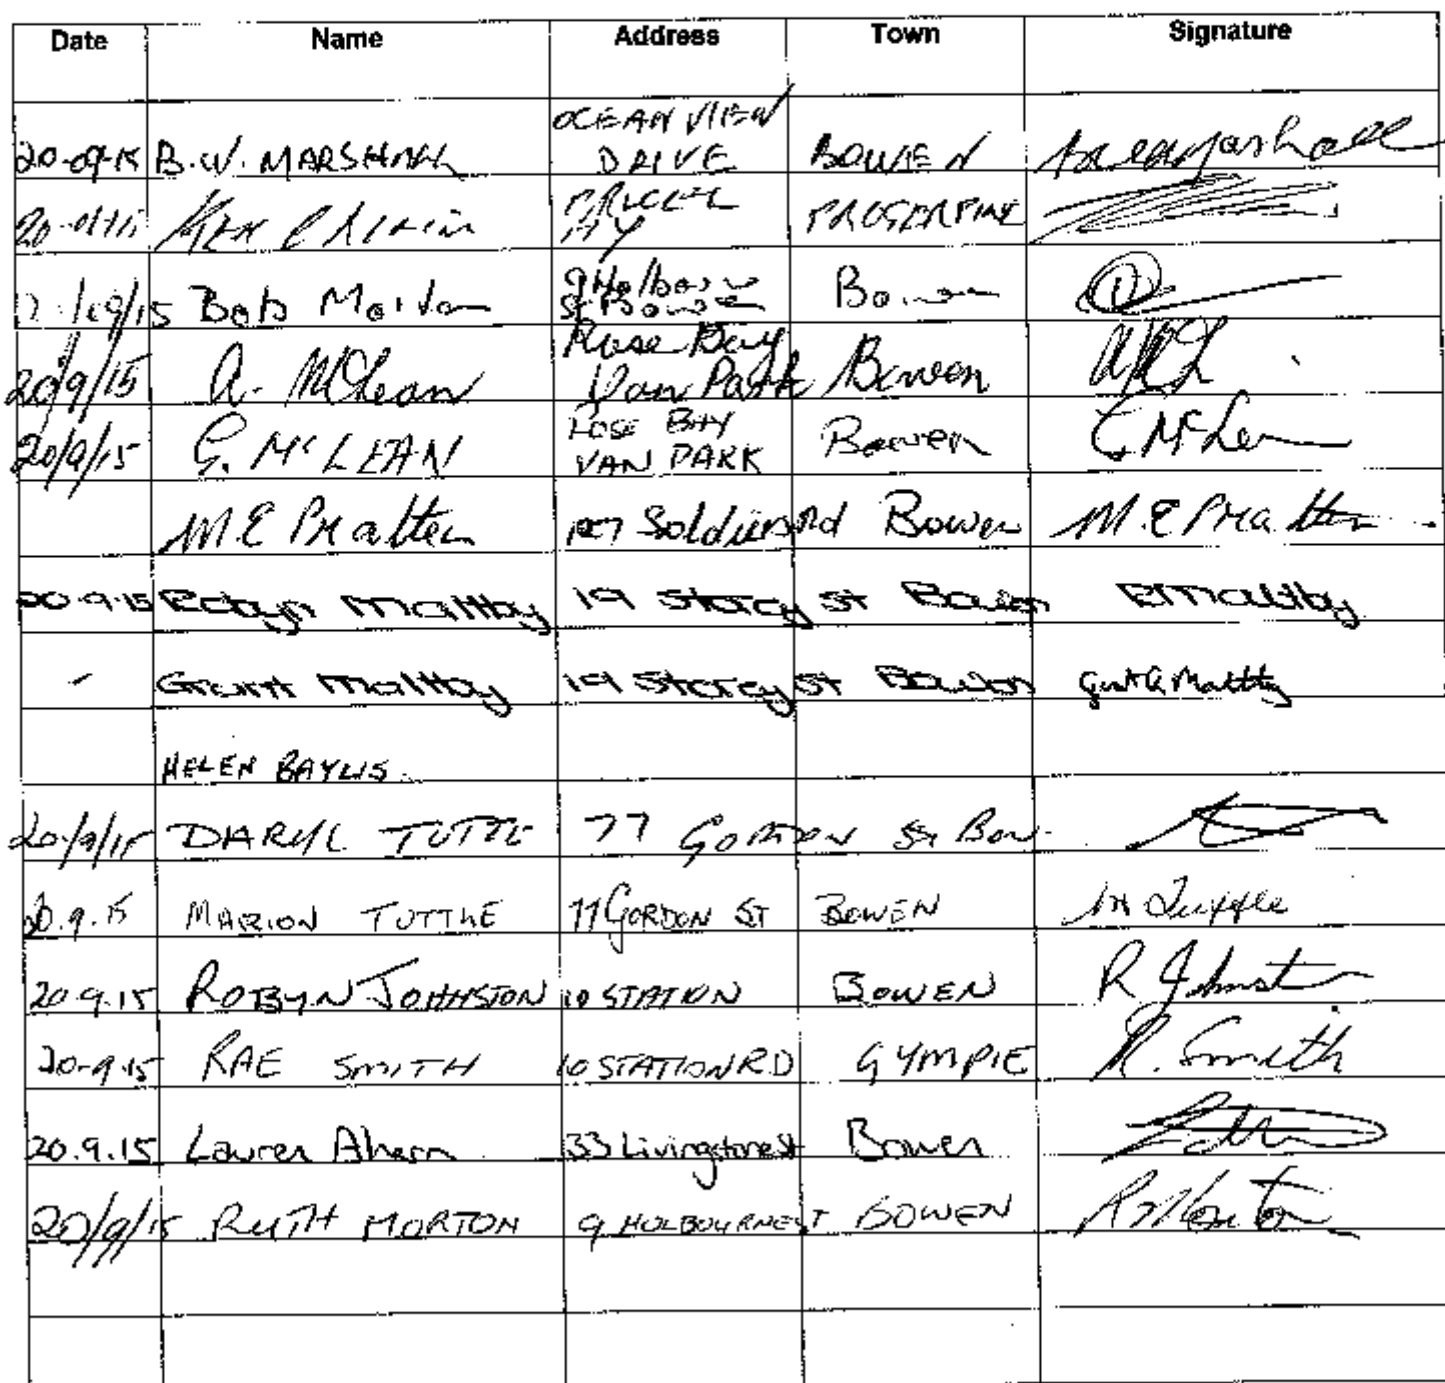 Date Name Address Town Signature
OCEAN VIEW
20-09-15 B.W. MARSHALL DRIVE BOWEN
PROSERPINE
9 Holbourne
/09/15 Bob Morton St Bowen Bowen
Rose Bay
20/9/15 A. McLean Van Park Bowen
ROSE BAY
20/9/15 G. McLEAN VAN PARK Bowen G. McLean
M E Pratten 127 Soldiers Rd Bowen M. E Pratten
20-9-15 Robyn Maltby 19 Storey St Bowen RMaltby
Grant Maltby 19 Storey St Bowen Grant A Maltby
HELEN BAYLIS
20/9/15 DARYL TUTTLE 77 GORDON St Bow.
20.9.15 MARION TUTTLE 77 GORDON ST BOWEN M Tuttle
20.9.15 ROBYN JOHNSTON 10 STATION BOWEN R Johnston
20-9-15 RAE SMITH 10 STATION RD GYMPIE R. Smith
20.9.15 Lauren Ahern 33 Livingstone St Bowen
20/9/15 RUTH MORTON 9 HOLBOURNE ST BOWEN R Morton